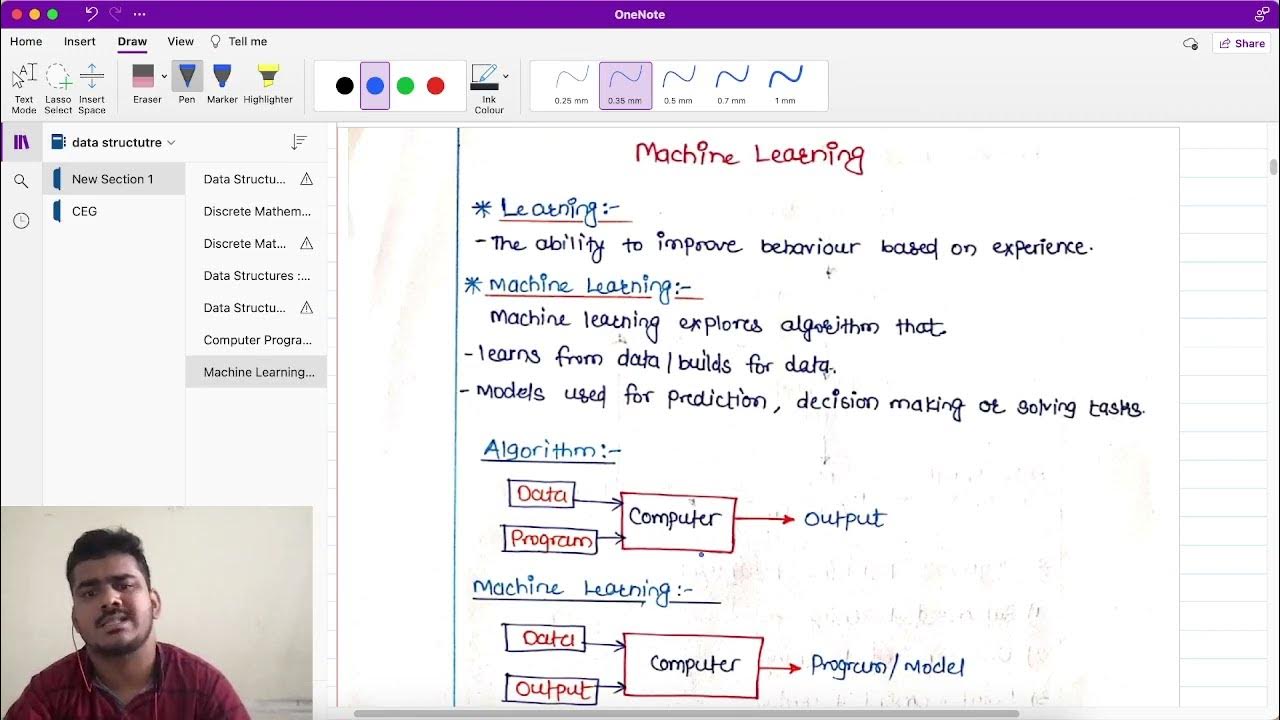 OneNote
Home Insert Draw View Tell me
Share
Text Mode
Lasso Select
Insert Space
Eraser
Pen
Marker
Highlighter
Ink Colour
0.25 mm
0.35 mm
0.5 mm
0.7 mm
1 mm
data structutre
New Section 1
CEG
Data Structu...
Discrete Mathem...
Discrete Mat...
Data Structures :...
Data Structu...
Computer Progra...
Machine Learning...
Machine Learning
* Learning:-
- The ability to improve behaviour based on experience.
* Machine Learning:-
Machine learning explores algorithm that
- learns from data/builds for data.
- Models used for prediction, decision making or solving tasks.
Algorithm:-
Data
Program
Computer
Output
Machine Learning:-
Data
Output
Computer
Program/Model